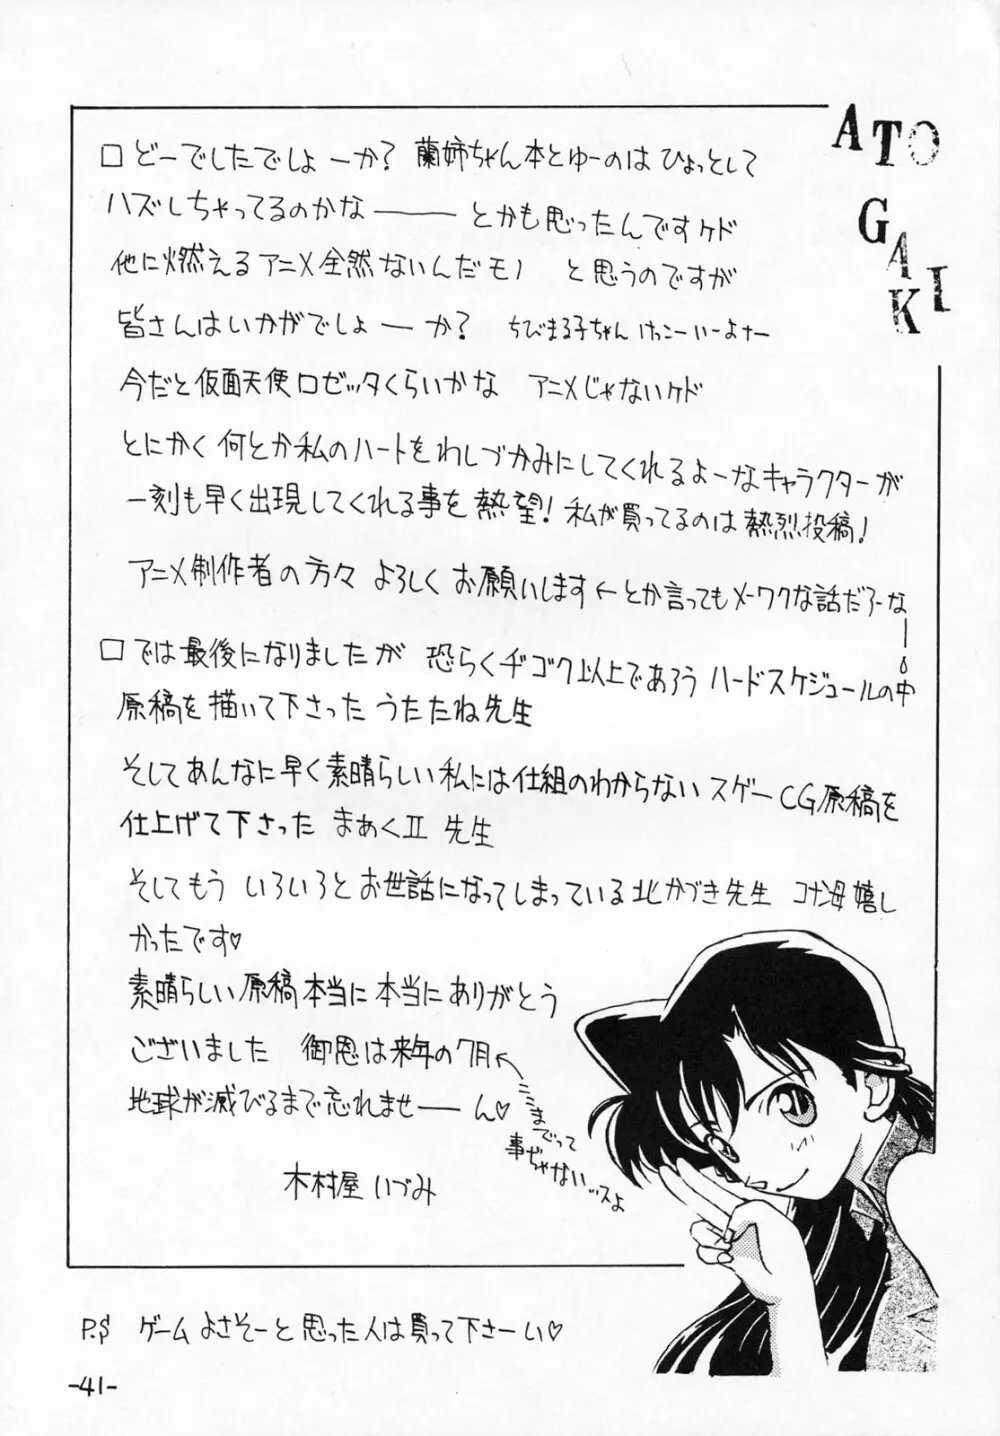 ATO
GAKI
□どーでしたでしょーか? 蘭姉ちゃん本とゆーのは ひょっとして
ハズしちゃってるのかな――― とかも思ったんですケド
他に燃えるアニメ全然ないんだモノ と思うのですが
皆さんはいかがでしょーか? ちびまる子ちゃん けっこーいーよナー
今だと仮面天使ロゼッタくらいかな アニメじゃないケド
とにかく何とか私のハートをわしづかみにしてくれるよーなキャラクターが
一刻も早く出現してくれる事を熱望! 私が買ってるのは熱烈投稿!
アニメ制作者の方々 よろしく お願いします←とか言ってもメーワクな話だろーなー
□では最後になりましたが 恐らくヂゴク以上であろう ハードスケジュールの中
原稿を描いて下さった うたたね先生
そしてあんなに早く素晴らしい私には仕組のわからない スゲーCG原稿を
仕上げて下さった まあくⅡ 先生
そしてもう いろいろとお世話になってしまっている北かづき先生 コナン母嬉し
かったです♡
素晴らしい原稿本当に本当にありがとう
ございました 御恩は来年の7月←
ここまでって
事ぢゃない…スよ
地球が滅びるまで忘れませーーん♡
木村屋いづみ
P.S ゲームよさそーと思った人は買って下さーい♡
-41-